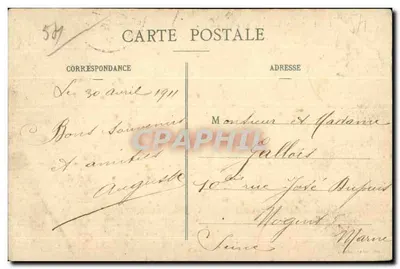 54
CARTE POSTALE
CORRESPONDANCE
ADRESSE
Le 30 avril 1911
Bons souvenirs
et amitiés
Auguste
Monsieur et Madame
Gallois
10 rue José Dupuis
Nogent s
Marne
Seine
Carte-Postale